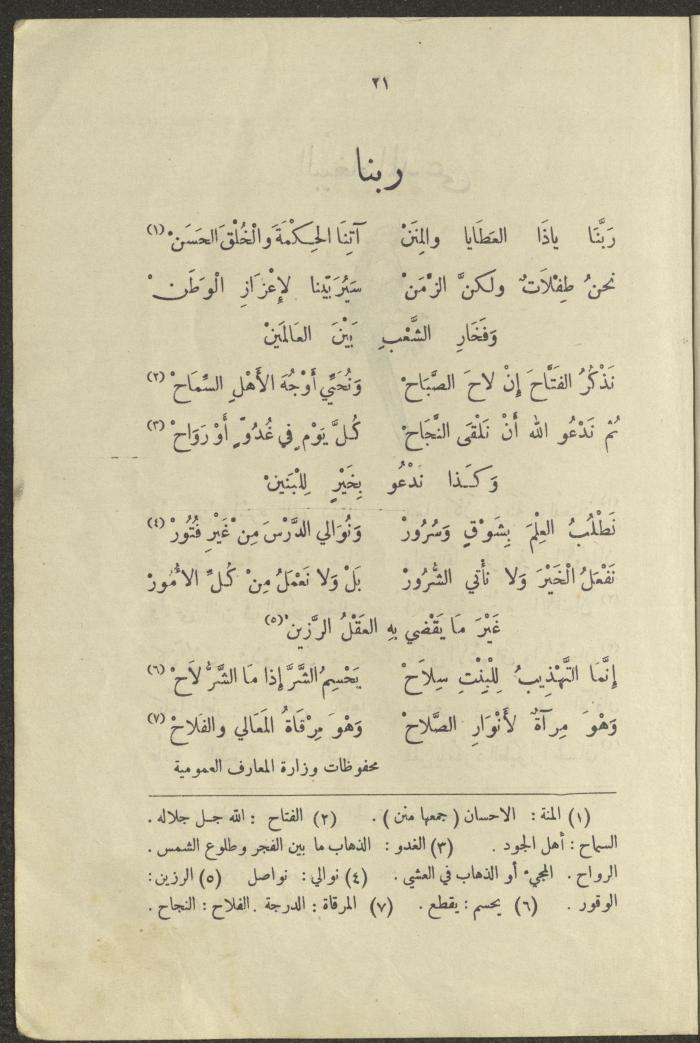 ٢١
ربنا
رَبَّنَا ياذَا العَطَايا والمِنَنْ آتِنَا الحِكْمَةَ والْخُلْقَ الحَسَنْ (١)
نحنُ طِفْلَاتٌ ولَكنَّ الزَّمَنْ سَيُرَبِّينا لإِعْزَازِ الْوَطَنْ
وَفَخَارِ الشَّعْبِ بَيْنَ العَالَمَينْ
نَذْكُرُ الفَتَّاحَ إِنْ لاحَ الصَّبَاحْ وَنُحَيِّي أَوْجُهَ الأَهْلِ السِّمَاحْ (٢)
ثمَّ نَدْعُو الله أَنْ نَلْقَى النَّجَاحْ كُلَّ يَوْمٍ فِي غُدُوٍّ أَوْ رَوَاحْ (٣)
وَكَذا نَدْعُو بِخَيْرٍ لِلْبَنَينْ
نَطْلُبُ العِلْمَ بِشَوْقٍ وَسُرُورْ وَنُوَالي الدَّرْسَ مِنْ غَيْرِ فُتُورْ (٤)
نَفْعَلُ الْخَيْرَ وَلا نَأْتي الشُّرُورْ بَلْ وَلا نَعْمَلُ مِنْ كُلِّ الأُمُورْ
غَيْرَ مَا يَقْضي بِهِ العَقْلُ الرَّزِينْ (٥)
إِنَّمَا التَّهْذِيبُ لِلْبِنْتِ سِلاَحْ يَحْسِمُ الشَّرَّ إِذا مَا الشَّرُّ لاَحْ (٦)
وَهْوَ مِرآةٌ لأَنْوَارِ الصَّلاحْ وَهْوَ مِرْقَاةُ المَعَالي والفَلاحْ (٧)
محفوظات وزارة المعارف العمومية
(١) المنة : الاحسان ( جمعها منن ) . (٢) الفتاح : الله جل جلاله .
السماح : أهل الجود . (٣) الغدو : الذهاب ما بين الفجر وطلوع الشمس .
الرواح . المجيء أو الذهاب في العشي . (٤) نوالي : نواصل (٥) الرزين :
الوقور . (٦) يحسم : يقطع . (٧) المرقاة : الدرجة . الفلاح : النجاح .